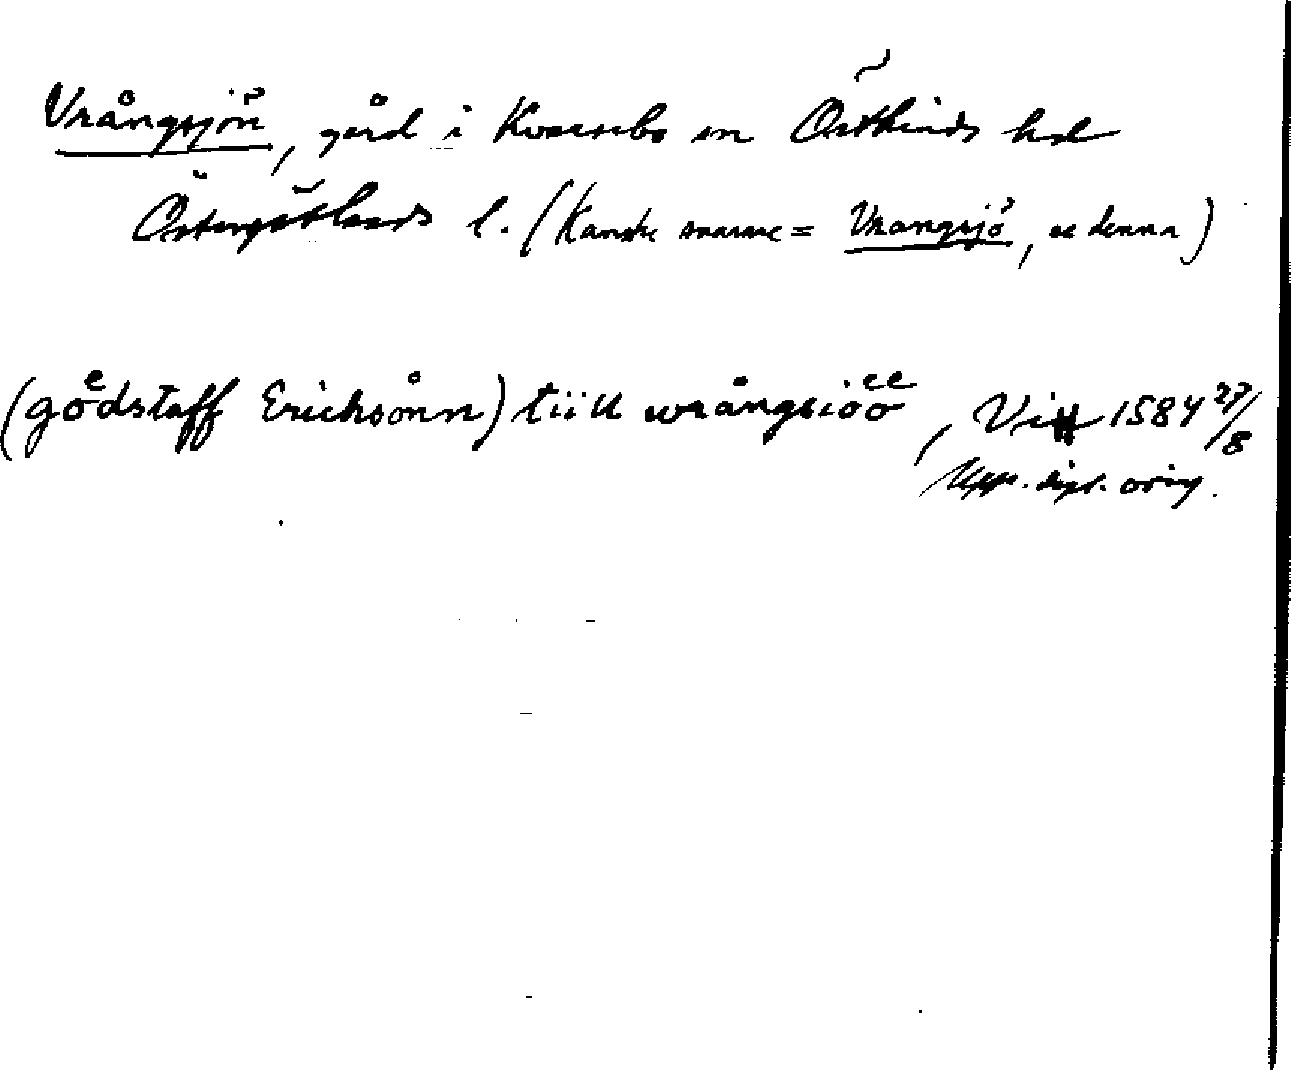 Vrångsjön, gård i Kvarsebo sn Östkinds hd
Östergötlands l. (Kanske snarare = Vrangsjö, se denna)
(goͤdstaff Erichsånn) tiill wrångsioͤoͤ, Vitt 1584 27/8
Upps. dipl. orig.